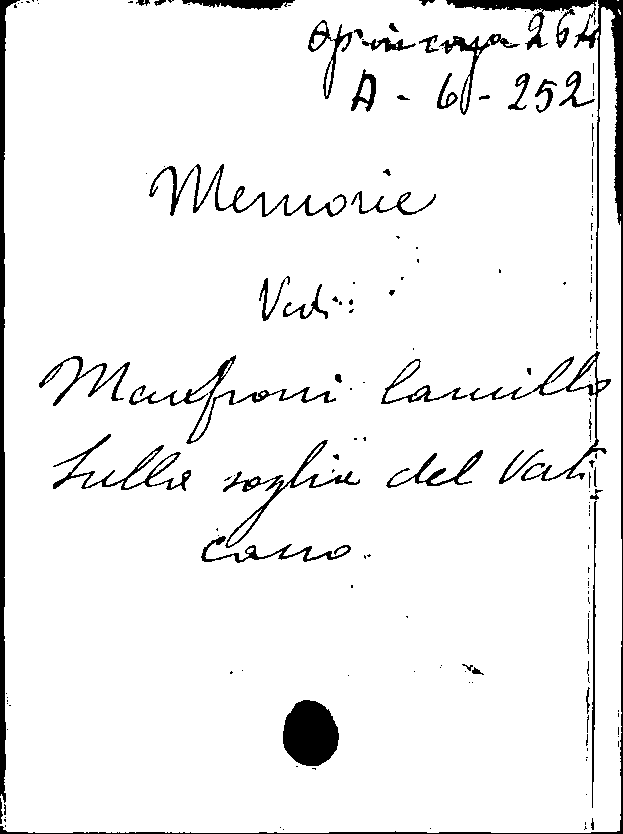 Op. in corso 264
A - 6 - 252
Memorie
Vedi:
Manfroni Camillo
Sulla soglia del Vati
cano